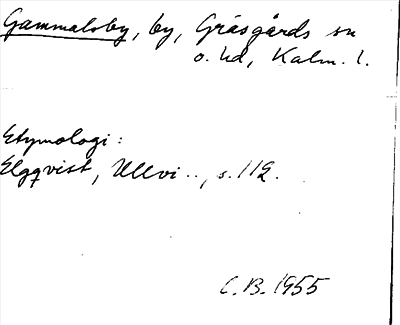 Gammalsby, by, Gräsgårds sn
o. hd, Kalm. l.
Etymologi:
Elgqvist, Ullvi.., s. 112.
C.B. 1955